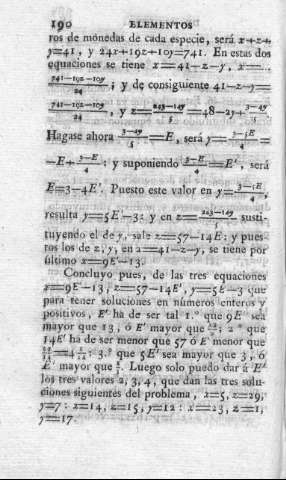 190 ELEMENTOS
ros de monedas de cada especie, será x+z+
y=41, y 24x+19z+10y=741. En estas dos
equaciones se tiene x=41-z-y, x=
741-19z-10y/24; y de consiguiente 41-z-y=
741-19z-10y/24, y z=243-14y/5=48-2y+3-4y/5.
Hagase ahora 3-4y/5=E, será y=3-5E/4=
-E+3-E/4: y suponiendo 3-E/4=E', será
E=3-4E'. Puesto este valor en y=3-5E/4,
resulta y=5E'-3: y en z=243-14y/5 susti-
tuyendo el de y, sale z=57-14E': y pues-
tos los de z, y, en x=41-z-y, se tiene por
último x=9E'-13.
Concluyo pues, de las tres equaciones
x=9E'-13, z=57-14E', y=5E'-3 que
para tener soluciones en números enteros y
positivos, E' ha de ser tal 1.° que 9E' sea
mayor que 13, ó E' mayor que 13/9: 2.° que
14E' ha de ser menor que 57 ó E' menor que
57/14=4 1/14: 3.° que 5E' sea mayor que 3, ó
E' mayor que 3/5. Luego solo puedo dar á E'
los tres valores 2, 3, 4, que dan las tres solu-
ciones siguientes del problema, x=5, z=29,
y=7: x=14, z=15, y=12: x=23, z=1,
y=17.